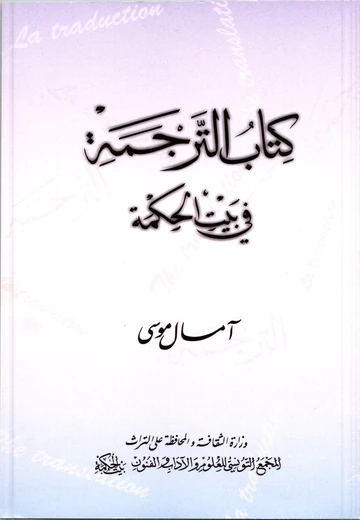 La traduction
The translation
كِتابُ التَّرجَمَة
في بَيت الحِكمة
آمال موسى
وزارة الثقافة والمحافظة على التراث
المجمع التونسي للعلوم والآداب والفنون بيت الحكمة
The translation
La traduction